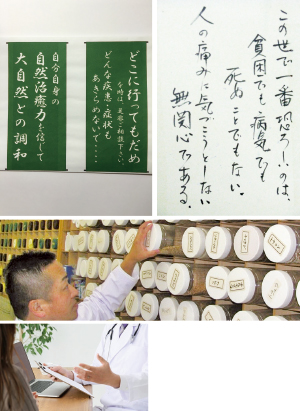 どこに行ってもだめ
な時は、是非ご相談下さい。
どんな疾患・症状も
あきらめないで……
自分自身の
自然治癒力を信じて
大自然との調和
この世で一番恐ろしいのは、
貧困でも病気でも
死ぬことでもない。
人の痛みに気づこうとしない
無関心である。